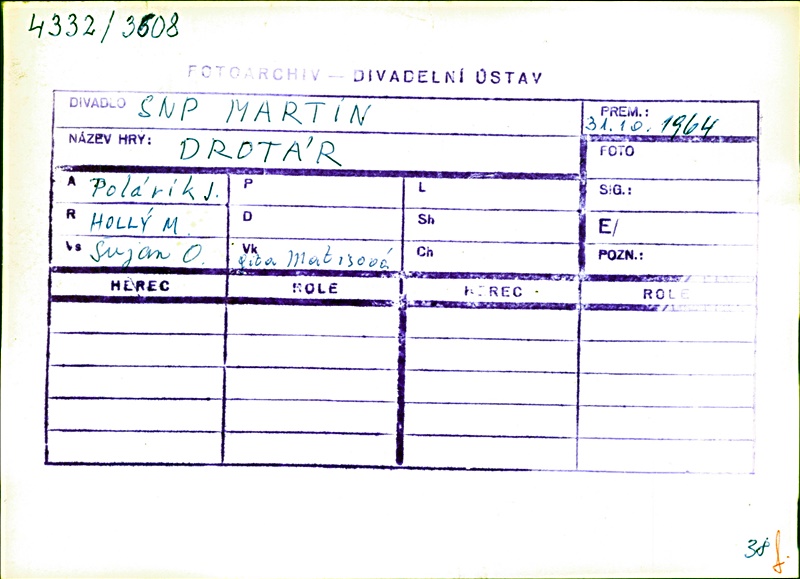 4332/3608
FOTOARCHIV — DIVADELNÍ ÚSTAV
DIVADLO SNP MARTIN
PREM.: 31.10.1964
NÁZEV HRY: DROTÁR
FOTO
A Polárik J. P L SIG.:
R HOLLÝ M. D Sh E/
Vs Šujan O. Vk Rita Matisová Ch POZN.:
HEREC ROLE HEREC ROLE
38